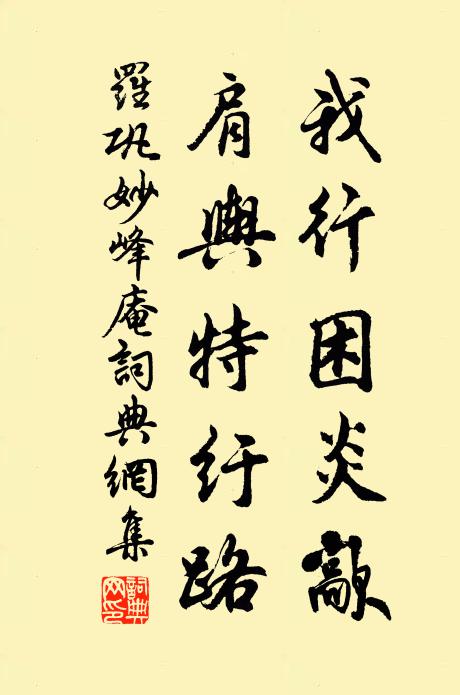 我行困炎歊
肩輿特紆路
羅巩妙峰庵詞典網集
詞典网印